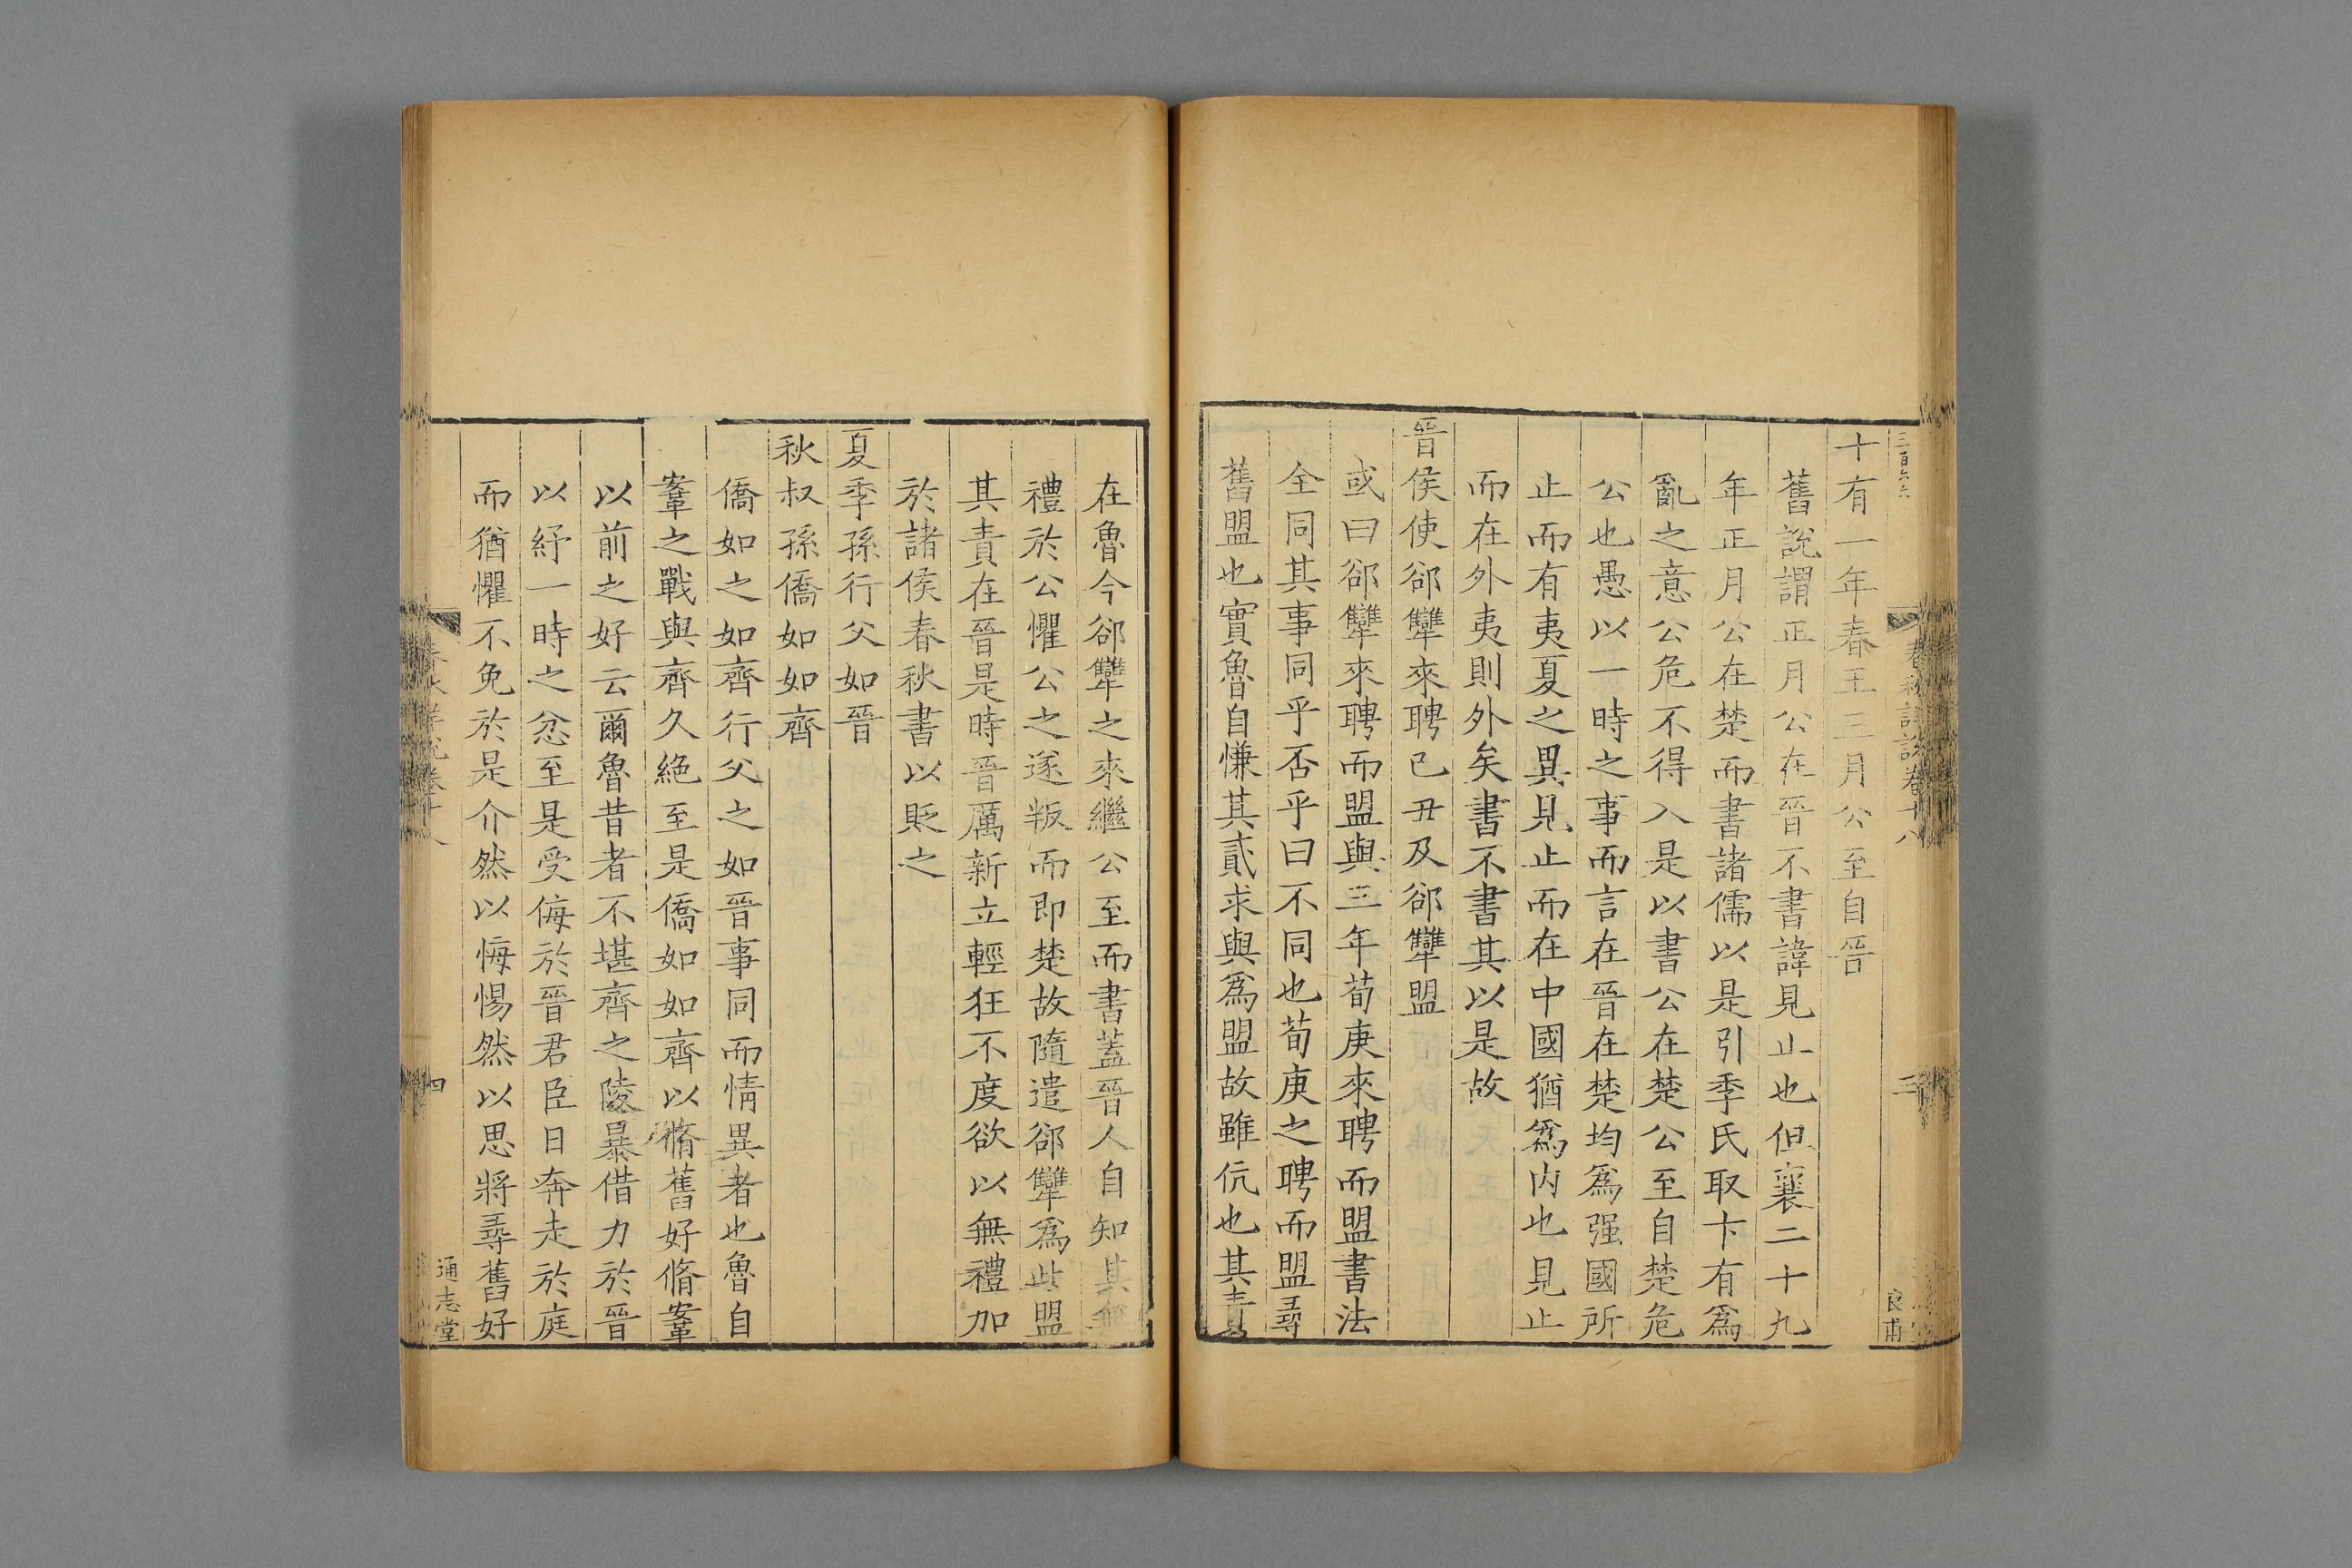 三百六六
十有一年春王三月公至自晉
舊說謂正月公在晉不書諱見止也但襄二十九
年正月公在楚而書諸儒以是引季氏取卞有爲
亂之意公危不得入是以書公在楚公至自楚危
公也愚以一時之事而言在晉在楚均爲强國所
止而有夷夏之異見止而在中國猶爲内也見止
而在外夷則外矣書不書其以是故
晉侯使郤犫來聘已丑及郤犫盟
或曰郤犫來聘而盟與三年荀庚來聘而盟書法
全同其事同乎否乎曰不同也荀庚之聘而盟尋
舊盟也實魯自慊其貳求與爲盟故雖伉也其責
春秋詳說卷十八
三
良甫
在魯今郤犫之來繼公至而書蓋晉人自知其無
禮於公懼公之遂叛而即楚故隨遣郤犫爲此盟
其責在晉是時晉厲新立輕狂不度欲以無禮加
於諸侯春秋書以貶之
夏季孫行父如晉
秋叔孫僑如如齊
僑如之如齊行父之如晉事同而情異者也魯自
鞌之戰與齊久絶至是僑如如齊以脩舊好脩鞌
以前之好云爾魯昔者不堪齊之陵暴借力於晉
以紓一時之忿至是受侮於晉君臣日奔走於庭
而猶懼不免於是介然以悔惕然以思將尋舊好
春秋詳說卷十八
四
通志堂